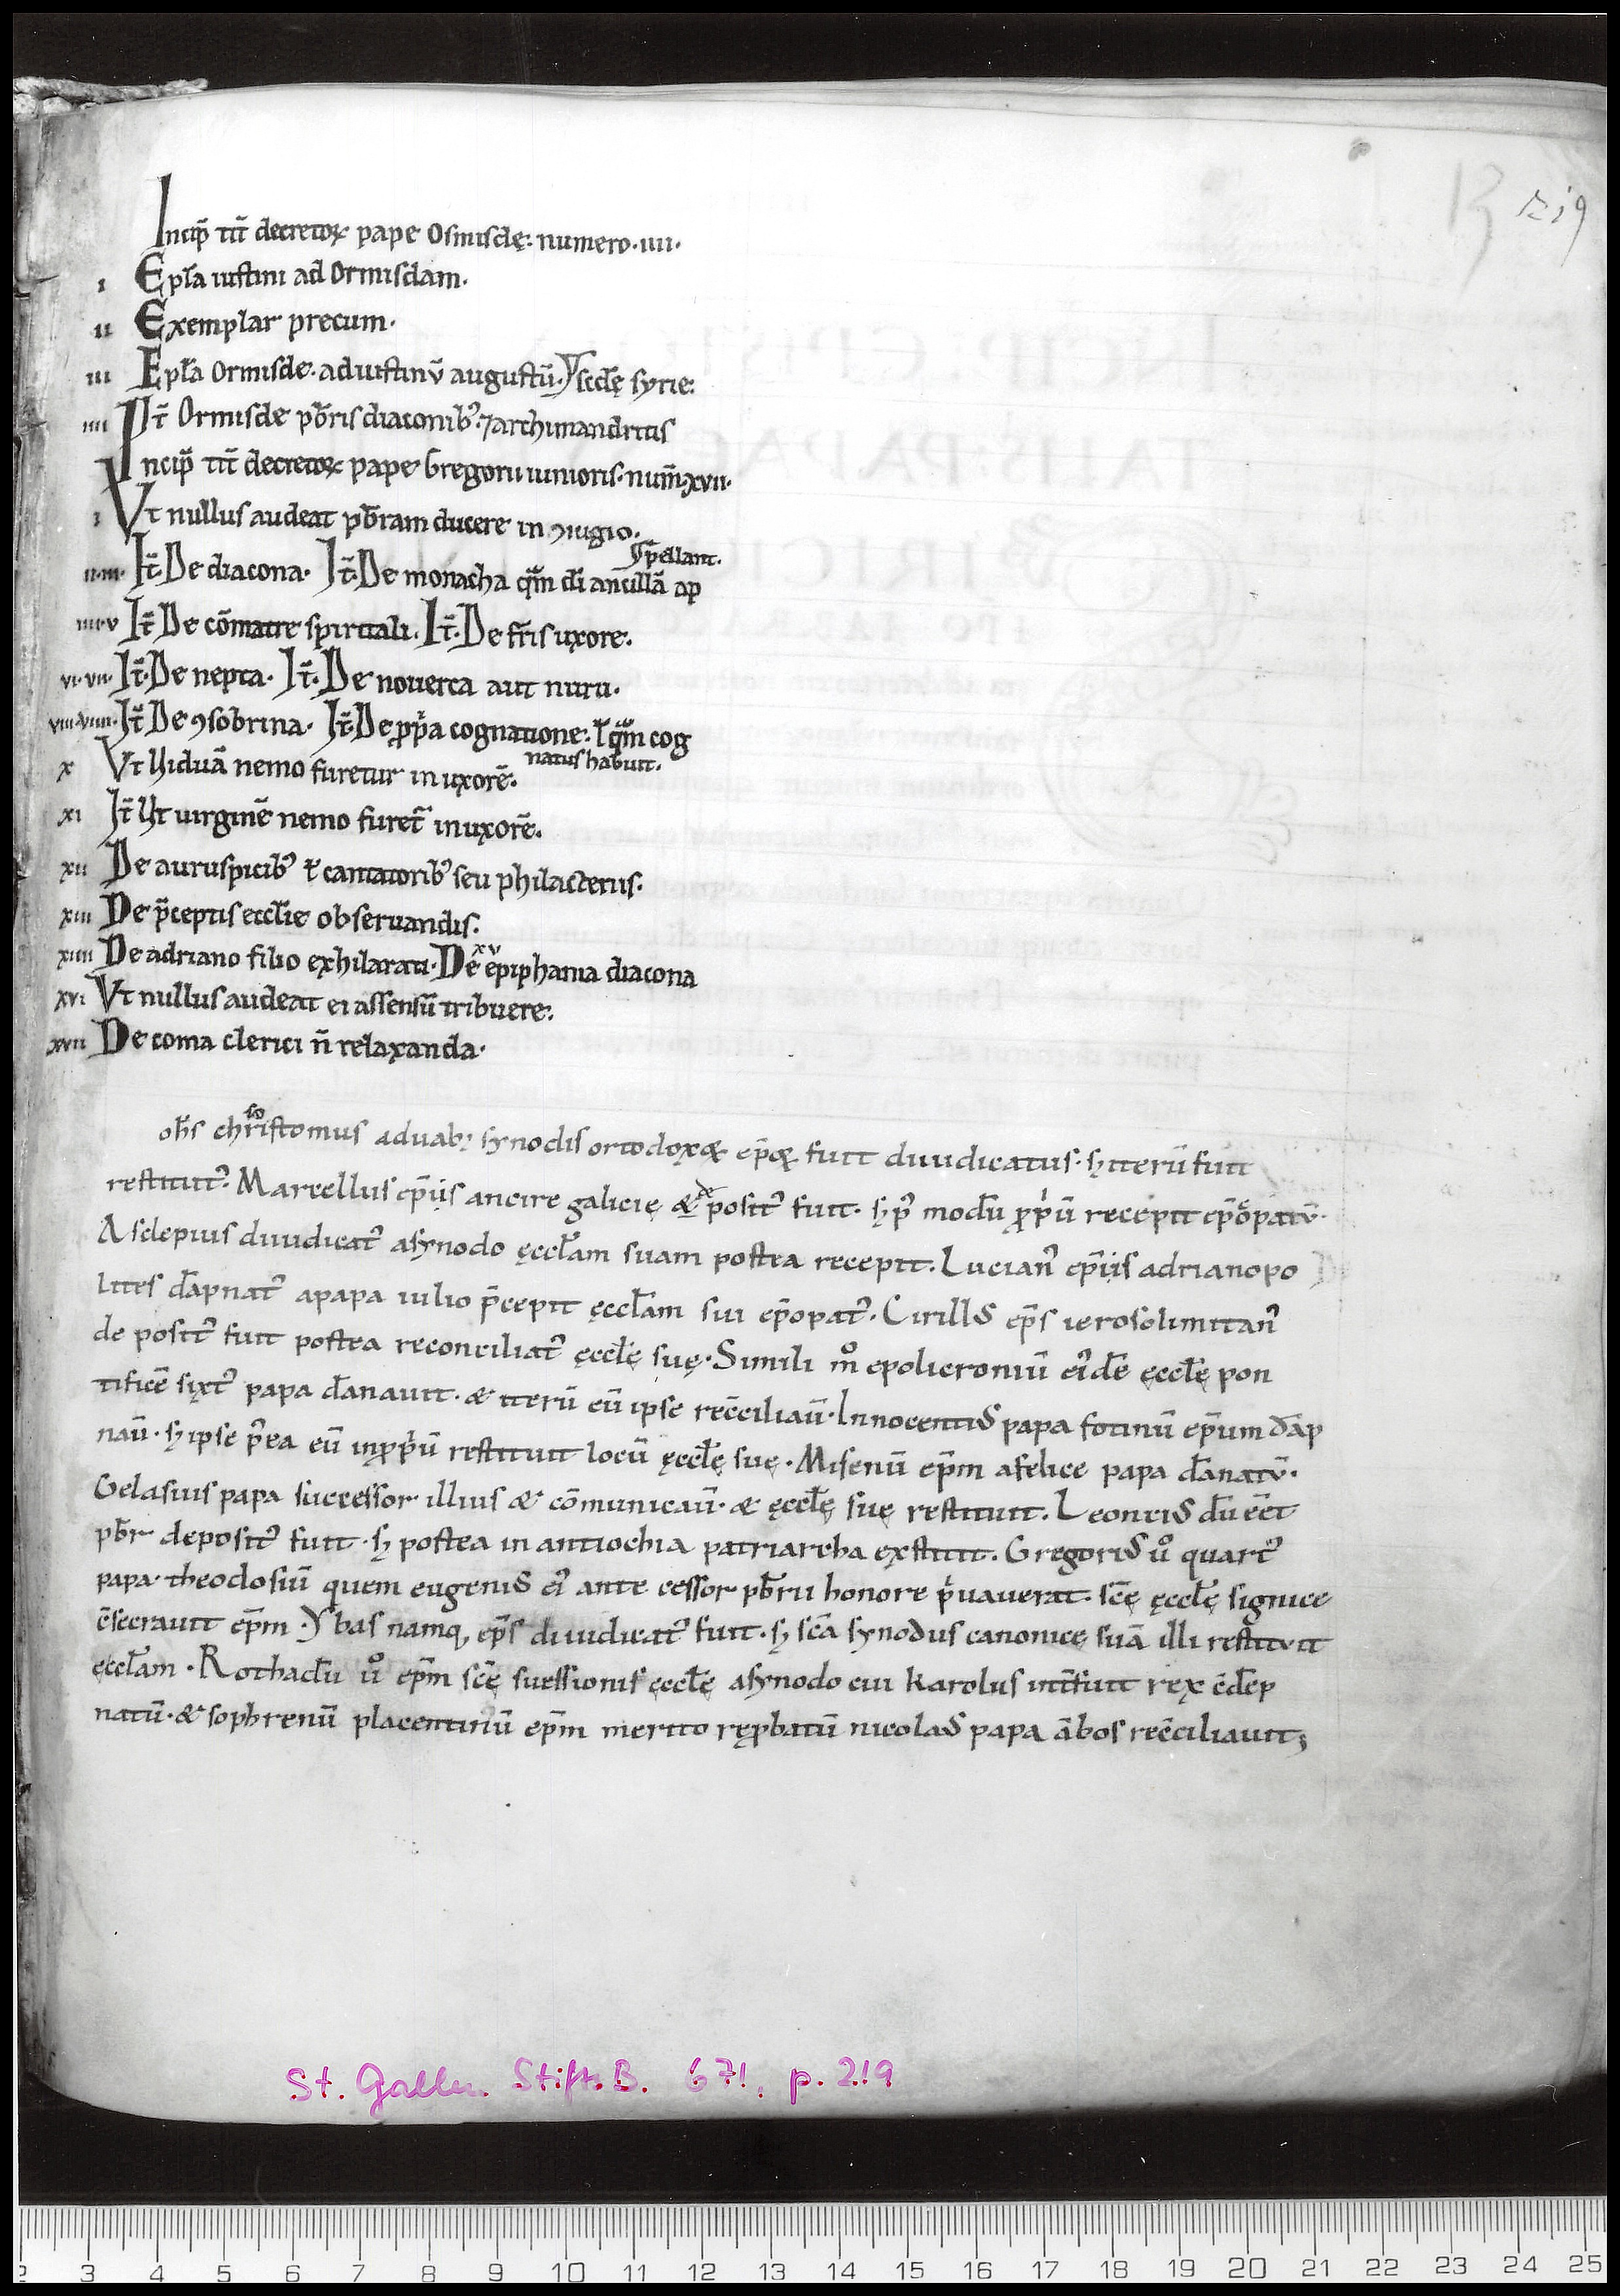 219
Incip̄ tit̄ decretoꝝ pape Osmisdę: numero · iiii ·
i Epl̄a iustini ad Ormisdam.
ii Exemplar precum ·
iii Epl̄a Ormisde · ad iustinū augustū ·
iiii It̄ Ormisde pb̄ris diaconibꝰ · ⁊ archimandritis
Incip̄ tit̄ decretoꝝ pape Gregorii iunioris · num̄ xvii ·
i Vt nullus audeat pb̄ram ducere in ꝯiugio ·
ii · iii · It̄ · De diacona · It̄ · De monacha qm̄ di ancillā ap
pellant.
iiii · v It̄ De cōmatre spiritali. It̄ · De fr̄is uxore.
vi · vii · It̄ · De nepta · It̄ · De nouerca aut nuru ·
viii · viiii · It̄ De ꝯsobrina · It̄ · De ꝓpria cognatione: ł qm̄ cog
natus habuit.
x Vt uiduā nemo furetur in uxorē.
xi It̄ Ut uirginē nemo furet̄ in uxorē.
xii De auruspicibꝰ ł cantatoribꝰ seu philacteriis.
xiii De p̄ceptis eccl̄ie obseruandis.
xiiii De adriano filio exhilarati · De xv epiphania diacona
xvi Vt nullus audeat ei assensū tribuere:
xvii De coma clerici n̄ relaxanda ·
ohs̄ chrisostomus a duab; synodis ortodoxoꝝ ep̄oꝝ fuit diiudicatus · s; iterū fuit
restitutꝰ. Marcellus ep̄s ancire galicię & depositꝰ fuit · s; p modū ꝓpriū recepit ep̄opatū ·
Asclepius diiudicatꝰ a synodo ęccl̄am suam postea recepit. Lucianꝰ ep̄s adrianopo
lites dāpnatꝰ a papa iulio p̄cepit ęccl̄am sui ep̄opatꝰ. Cirillꝰ ep̄s ierosolimitanꝰ
de positꝰ fuit postea reconciliatꝰ ęccl̄ę suę · Simili mo epolicroniū eide ęccl̄ę pon
tificē sixtꝰ papa dānauit · & iterū eū ipse recc̄iliauit · Innocentiꝰ papa fotinū ep̄um dāp
nau̅ · s; ipse p̄ea eū in ꝓpriū restituit locū ęccl̄ę suę · Misenū ep̄m a felice papa dānatū ·
Gelasius papa successor illius & cōmunicau̅ · & ęccl̄ę suę restituit. Leontiꝰ dū eēt
pb̄r depositꝰ fuit · s; postea in antiochia patriarcha exstitit. Gregoriꝰ uo quartꝰ
papa · theodosiū quem eugeniꝰ eiꝰ ante cessor pb̄rii honore p̄uauerat · sc̄ę ęccl̄ę signice
c̄secrauit ep̄m · Ybas namq; ep̄s diiudicatꝰ fuit · s; sc̄a synodus canonicę suā illi restituit
ęccl̄am · Rothadū uo ep̄m sc̄ę suessionis ęccl̄ę a synodo cui karolus int̄fuit rex c̄dep
natū · & sophrenū placentinū ep̄m merito reꝓbatū nicolaꝰ papa ābos recc̄iliauit;
St. Gallen Stifts.B. 671, p. 219
2 3 4 5 6 7 8 9 10 11 12 13 14 15 16 17 18 19 20 21 22 23 24 25